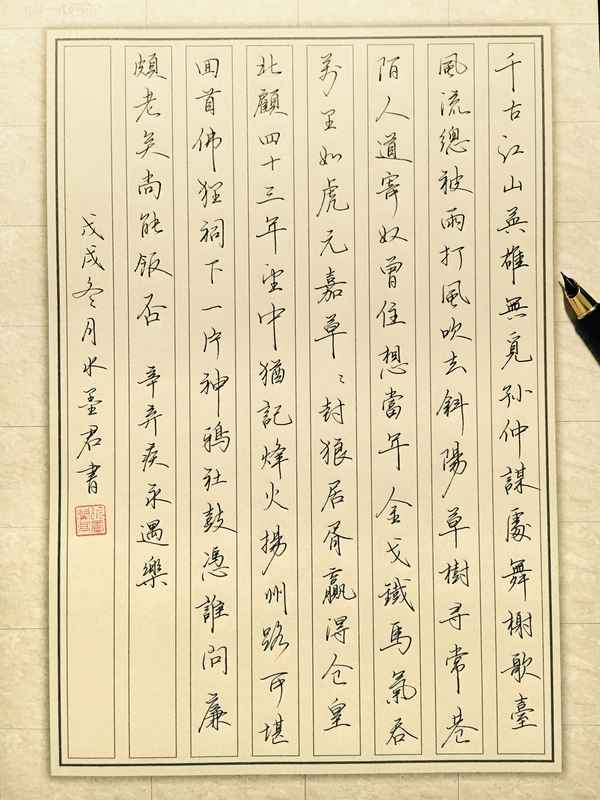 千古江山英雄無覓孙仲謀處舞榭歌臺
風流總被雨打風吹去斜陽草樹寻常巷
陌人道寄奴曾住想當年金戈鐵馬氣吞
萬里如虎元嘉草〻封狼居胥贏得仓皇
北顧四十三年望中猶記烽火揚州路可堪
回首佛狸祠下一片神鴉社鼓憑誰問廉
頗老矣尚能飯否 辛弃疾永遇樂
戊戌冬月水墨君書